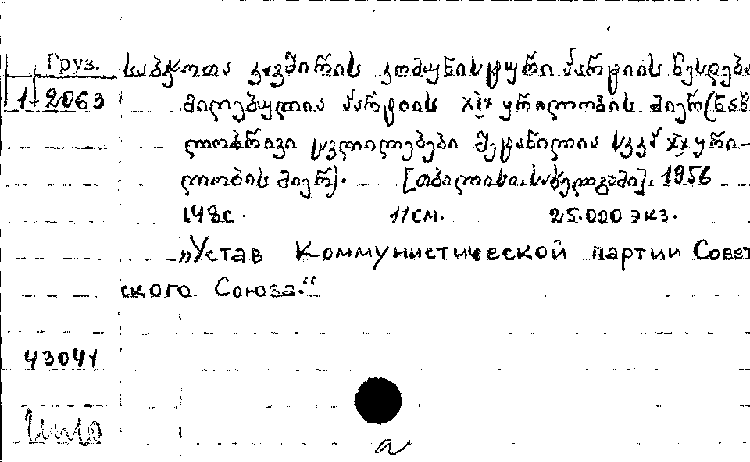 Груз.
1-2063
საბჭოთა კავშირის კომუნისტური პარტიის წესდება
მიღებულია პარტიის XIX ყრილობის მიერ (ნაწ
ლობრივი ცვლილებები შეტანილია სკკპ XX ყრი-
ლობის მიერ). [თბილისი. სახელგამი]. 1956
148с. 11см. 25.020 экз.
„Устав Коммунистической партии Совет
ского Союза.“
43041